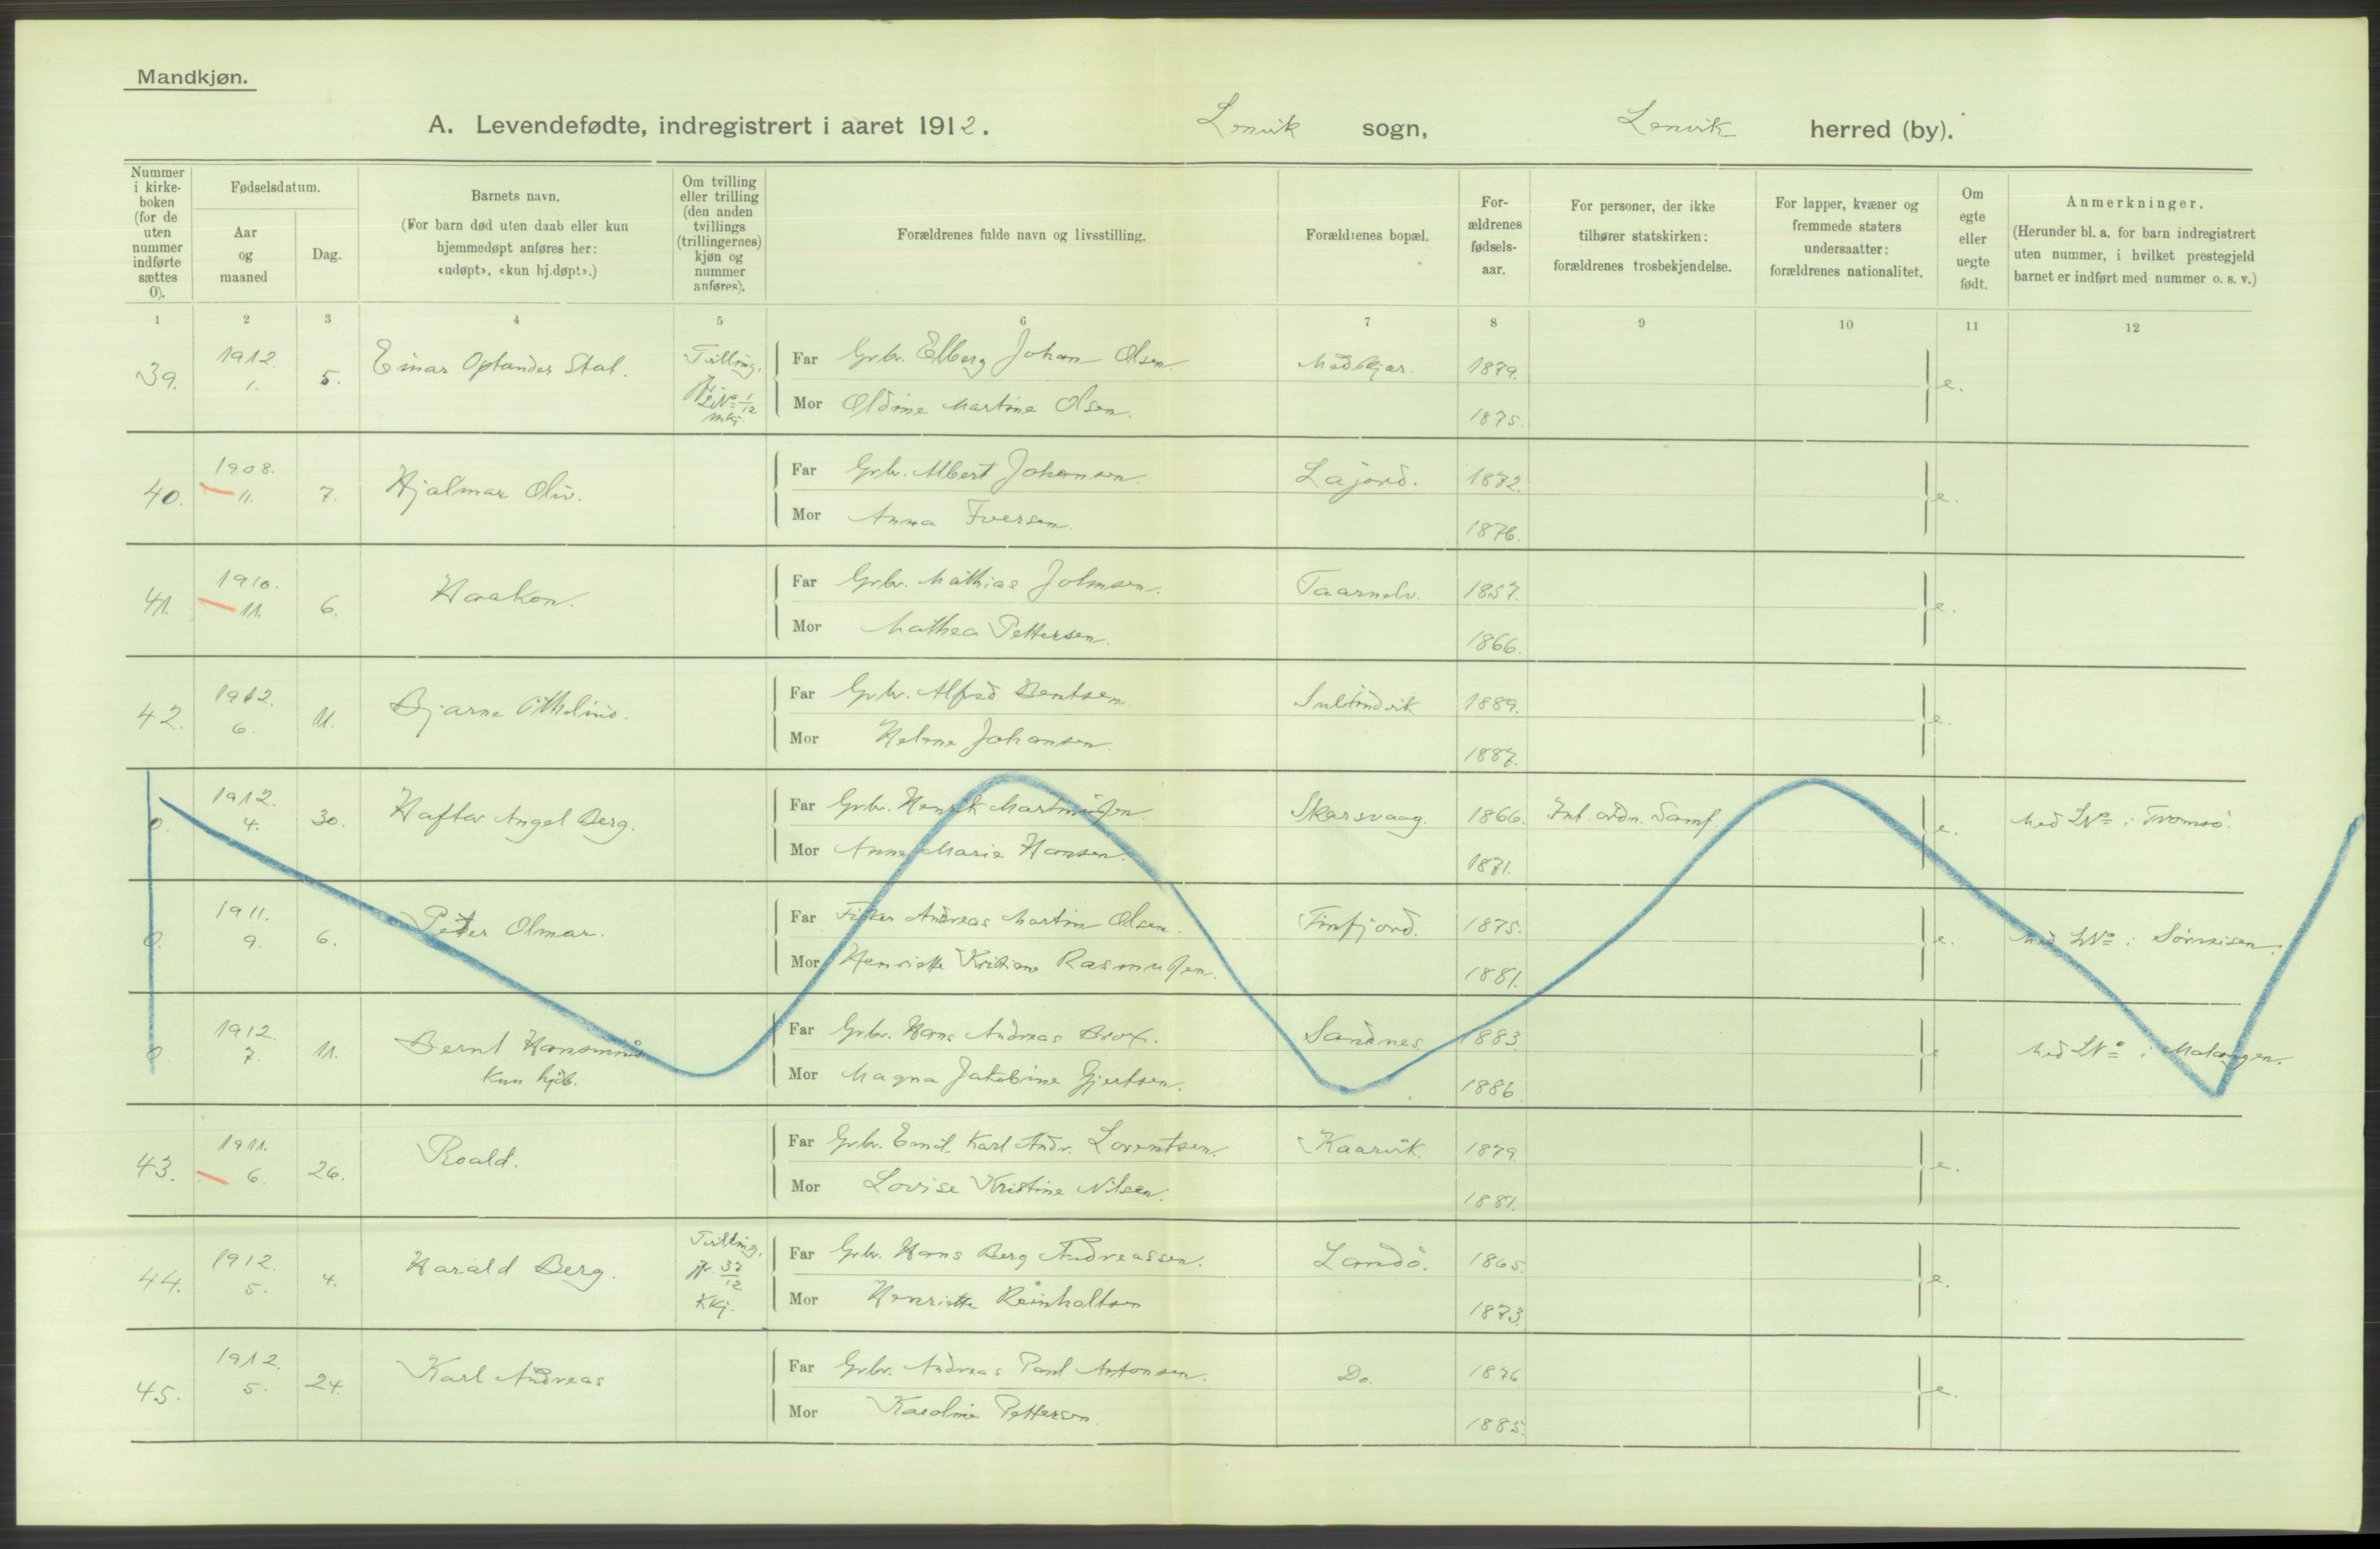 Mandkjøn.
A. Levendefødte, indregistrert i aaret 1912. Lenvik sogn, Lenvik herred (by).
Nummer i kirke-boken (for de uten nummer indførte sættes 0).
Fødselsdatum.
Aar og maaned
Dag.
Barnets navn.
(For barn død uten daab eller kun hjemmedøpt anføres her: «udøpt», «kun hj.døpt».)
Om tvilling eller trilling (den anden tvillings (trillingernes) kjøn og nummer anføres).
Forældrenes fulde navn og livsstilling.
Forældrenes bopæl.
For-ældrenes fødsels-aar.
For personer, der ikke tilhører statskirken: forældrenes trosbekjendelse.
For lapper, kvæner og fremmede staters undersaatter: forældrenes nationalitet.
Om egte eller uegte født.
Anmerkninger.
(Herunder bl. a. for barn indregistrert uten nummer, i hvilket prestegjeld barnet er indført med nummer o. s. v.)
1 2 3 4 5 6 7 8 9 10 11 12
39. 1912. 1. 5. Einar Optander Stal. Tvilling. LNo 1/12 Mkj.
Far Grbr. Elberg Johan Olsen. 1879. e.
Mor Oldine Martine Olsen. 1875.
40. 1908. 11. 7. Hjalmar Oliv.
Far Grbr. Albert Johansen. Lajord. 1872. e.
Mor Anna Iversen. 1876.
41. 1910. 11. 6. Haakon.
Far Grbr. Mathias Johnsen. Taarnelv. 1857. e.
Mor Mathea Pettersen. 1866.
42. 1912. 6. 11. Bjarne
Far Grbr. Alfred Bentsen. 1889. e.
Mor Helene Johansen. 1887.
0. 1912. 4. 30. Haftor Angel Berg.
Far Grbr. Henrik Martinusen. Skarsvaag. 1866. Int. ordn. Samf. e. Med LNo i Tromsö.
Mor Anne Marie Hansen. 1871.
0. 1911. 9. 6. Peder Olmar.
Far Fisker Andreas Martin Olsen. Finfjord. 1875. e. Med LNo i Sörreisen.
Mor Henriette Kristiane Rasmussen. 1881.
0. 1912. 7. 11. Bernt Hansminius
Kun hjdb.
Far Grbr. Hans Andreas Brox. Sandnes 1883. e Med LNo i Malangen.
Mor Magna Jakobine Gjertsen. 1886.
43. 1911. 6. 26. Roald.
Far Grbr. Emil Karl Andr. Lorentsen. Kaarvik. 1879. e.
Mor Lovise Kristine Nilsen. 1881.
44. 1912. 5. 4. Harald Berg. Tvilling. 37/12 Kkj.
Far Grbr. Hans Berg Andreassen. Landö. 1865. e.
Mor Henriette Reinholtsen 1873.
45. 1912. 5. 24. Karl Andreas
Far Grbr. Andreas Paul Antonsen. Do. 1876 e.
Mor Karoline Pettersen. 1885.